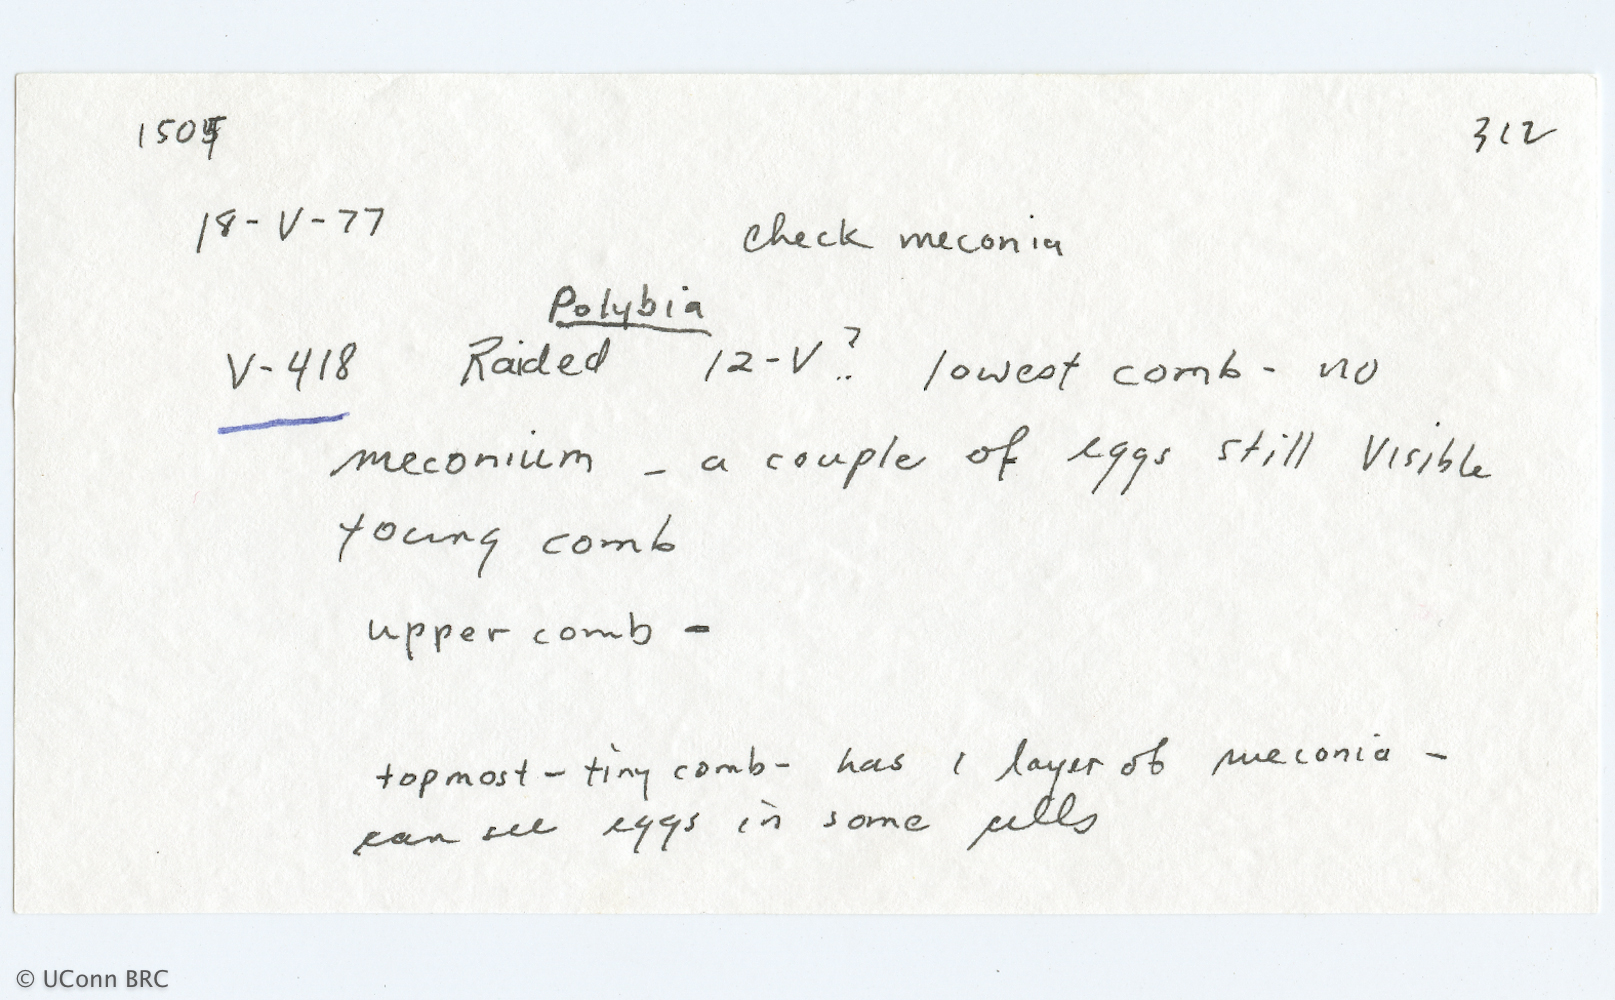 312
18-V-77
check meconia
Polybia
V-418 Raided 12-V? lowest comb - no
meconium - a couple of eggs still visible
young comb
upper comb -
topmost - tiny comb - has 1 layer of meconia -
can see eggs in some cells
© UConn BRC